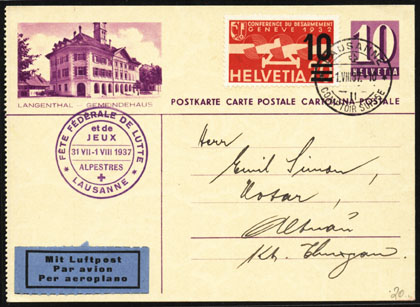 CONFERENCE DU DESARMEMENT
GENÈVE 1932
10
HELVETIA
10
HELVETIA
LAUSANNE
COMPTOIR SUISSE
LANGENTHAL - GEMEINDEHAUS
POSTKARTE CARTE POSTALE CARTOLINA POSTALE
FÊTE FÉDÉRALE DE LUTTE
et de
JEUX
31 VII-1 VIII 1937
ALPESTRES
LAUSANNE
Herrn
Emil Simon,
Notar,
Altnau
Kt. Thurgau.
Mit Luftpost
Par avion
Per aeroplano
20.